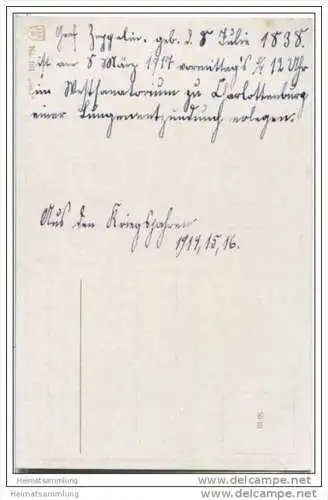 Graf Zeppelin. geb. d. 8 Julie 1838.
ist am 8 März 1917 vormittag's 3/4 12 Uhr
im Westsanatorium zu Charlottenburg
einer Lungenentzündunch erlegen.
Aus den Kriegsjahren
1914, 15, 16.
Heimatsammlung
Heimatsammlung
www.delcampe.net